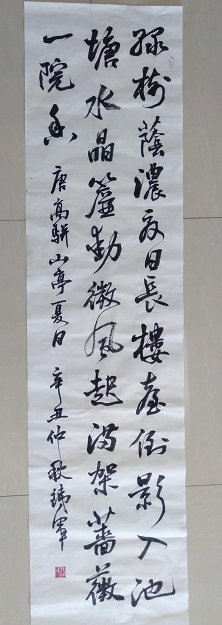 綠樹蔭濃夏日長樓臺倒影入池
塘水晶簾動微風起滿架薔薇
一院香 唐高駢山亭夏日 辛丑仲秋瑞軍